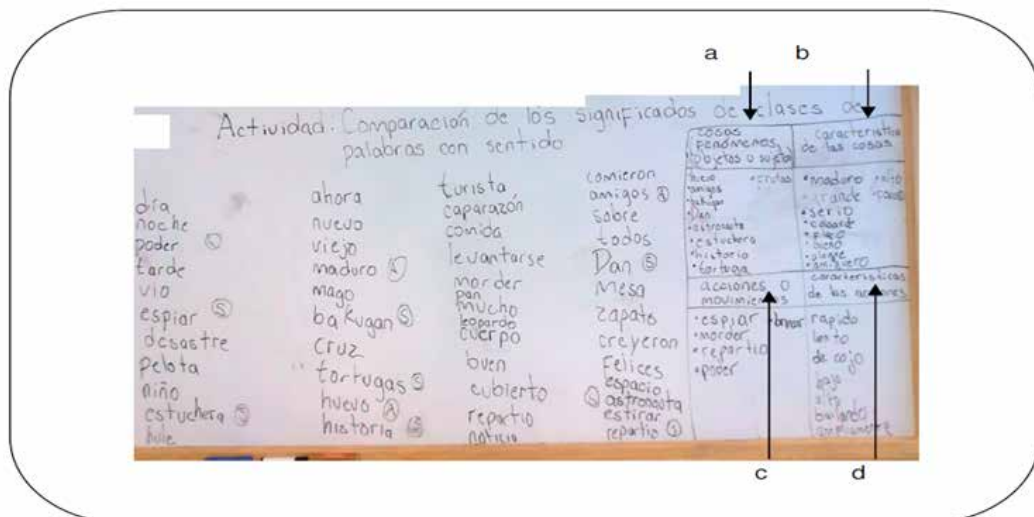 a b
Actividad. Comparación de los significados de clases de
palabras con sentido
día
noche
poder
tarde
vio
espiar S
desastre
pelota
niño
estuchera S
hule
ahora
nuevo
viejo
maduro
mago
bakugan S
cruz
tortugas S
huevo A
historia S
turista
caparazón
comida
levantarse
morder
pan
mucho
leopardo
cuerpo
buen
cubierto
repartio
noticia
comieron
amigos A
sobre
todos
Dan S
mesa
zapato
creyeron
Felices
espacio
S astronauta
estirar
repartio S
cosas
fenómenos,
objetos o sujeto
huevo
•amigos
•Dan
•astronauta
•estuchera
•historia
•tortuga
Característica
de las cosas
•maduro
•grande
•serio
•cobarde
•alegre
acciones o
movimientos
•espiar
•morder
•repartio
•poder
características
de las acciones
rapido
lento
de cojo
bajo
alto
bailando
c d